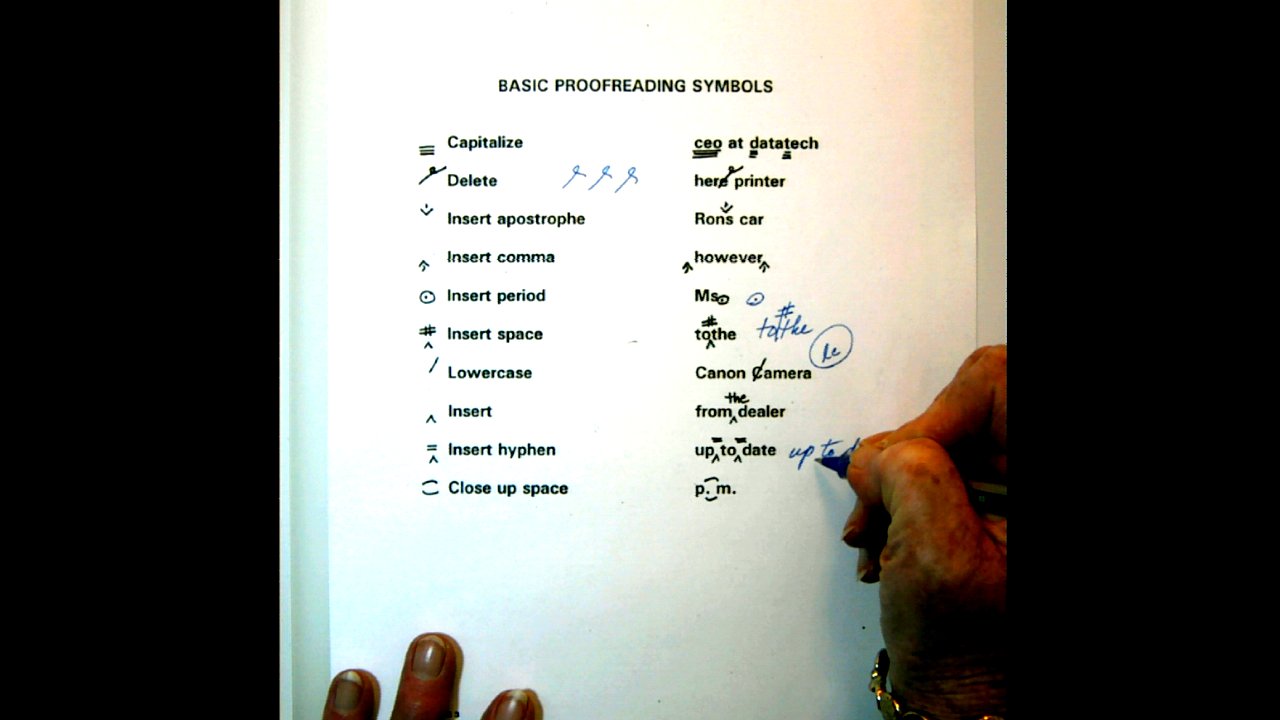 BASIC PROOFREADING SYMBOLS
Capitalize ceo at datatech
Delete here printer
Insert apostrophe Rons car
Insert comma however
Insert period Ms
# Insert space # tothe # tothe
lc
Lowercase Canon Camera
Insert the from dealer
Insert hyphen up to date up to d
Close up space p. m.